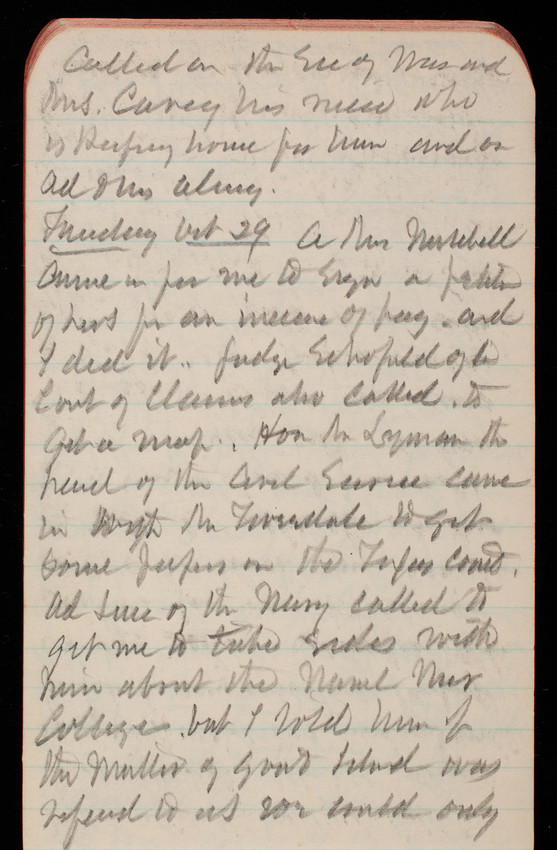 Called on the Sec of War and
Mrs. Carey his niece who
is Keeping house for him and on
Ad
Tuesday Oct 29 A Mrs Mitchell
came in for me to sign a petition
of hers for an increase of pay and
I did it.. Judge Schofield of the
Court of Claims also called. to
get a map. Hon Mr Lyman the
head of the Civil Service came
in with Mr to get
some papers on the court.
Ad of the Navy called to
get me to take sides with
him about the Naval War
College. but I told him if
the matter of Island was
referred to us we could only